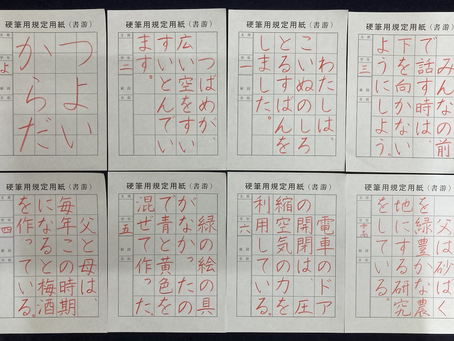 硬筆用規定用紙(書游)
つよい
からだ
よ
硬筆用規定用紙(書游)
つばめが、
広い空をすい
すいとんでい
ます。
二
硬筆用規定用紙(書游)
わたしは、
こいぬのしろ
とるすばんを
しました。
一
硬筆用規定用紙(書游)
みんなの前
で話す時は、
下を向かない
ようにしよう。
三
硬筆用規定用紙(書游)
父と母は、
毎年この時期
になると梅酒
を作っている。
四
硬筆用規定用紙(書游)
緑の絵の具
がなかったの
で青と黄色を
混ぜて作った。
五
硬筆用規定用紙(書游)
電車のドア
の開閉は、圧
縮空気の力を
利用している。
六
硬筆用規定用紙(書游)
父は砂ばく
を緑豊かな農
地にする研究
をしている。